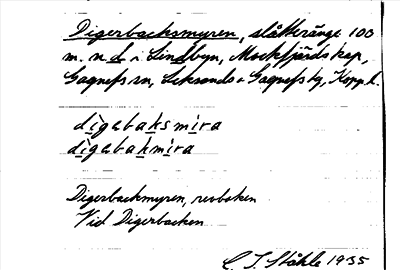 Digerbacksmyren, slåtteränge 100
m. n. d. i Lindbyn, Mockfjärds kap,
Gagnefs sn, Leksands o Gagnefs tg, Kopp. l.
digabaksmira
digabakmira
Digerbackmyren, revboken
Vid Digerbacken
C. I. Ståhle 1935